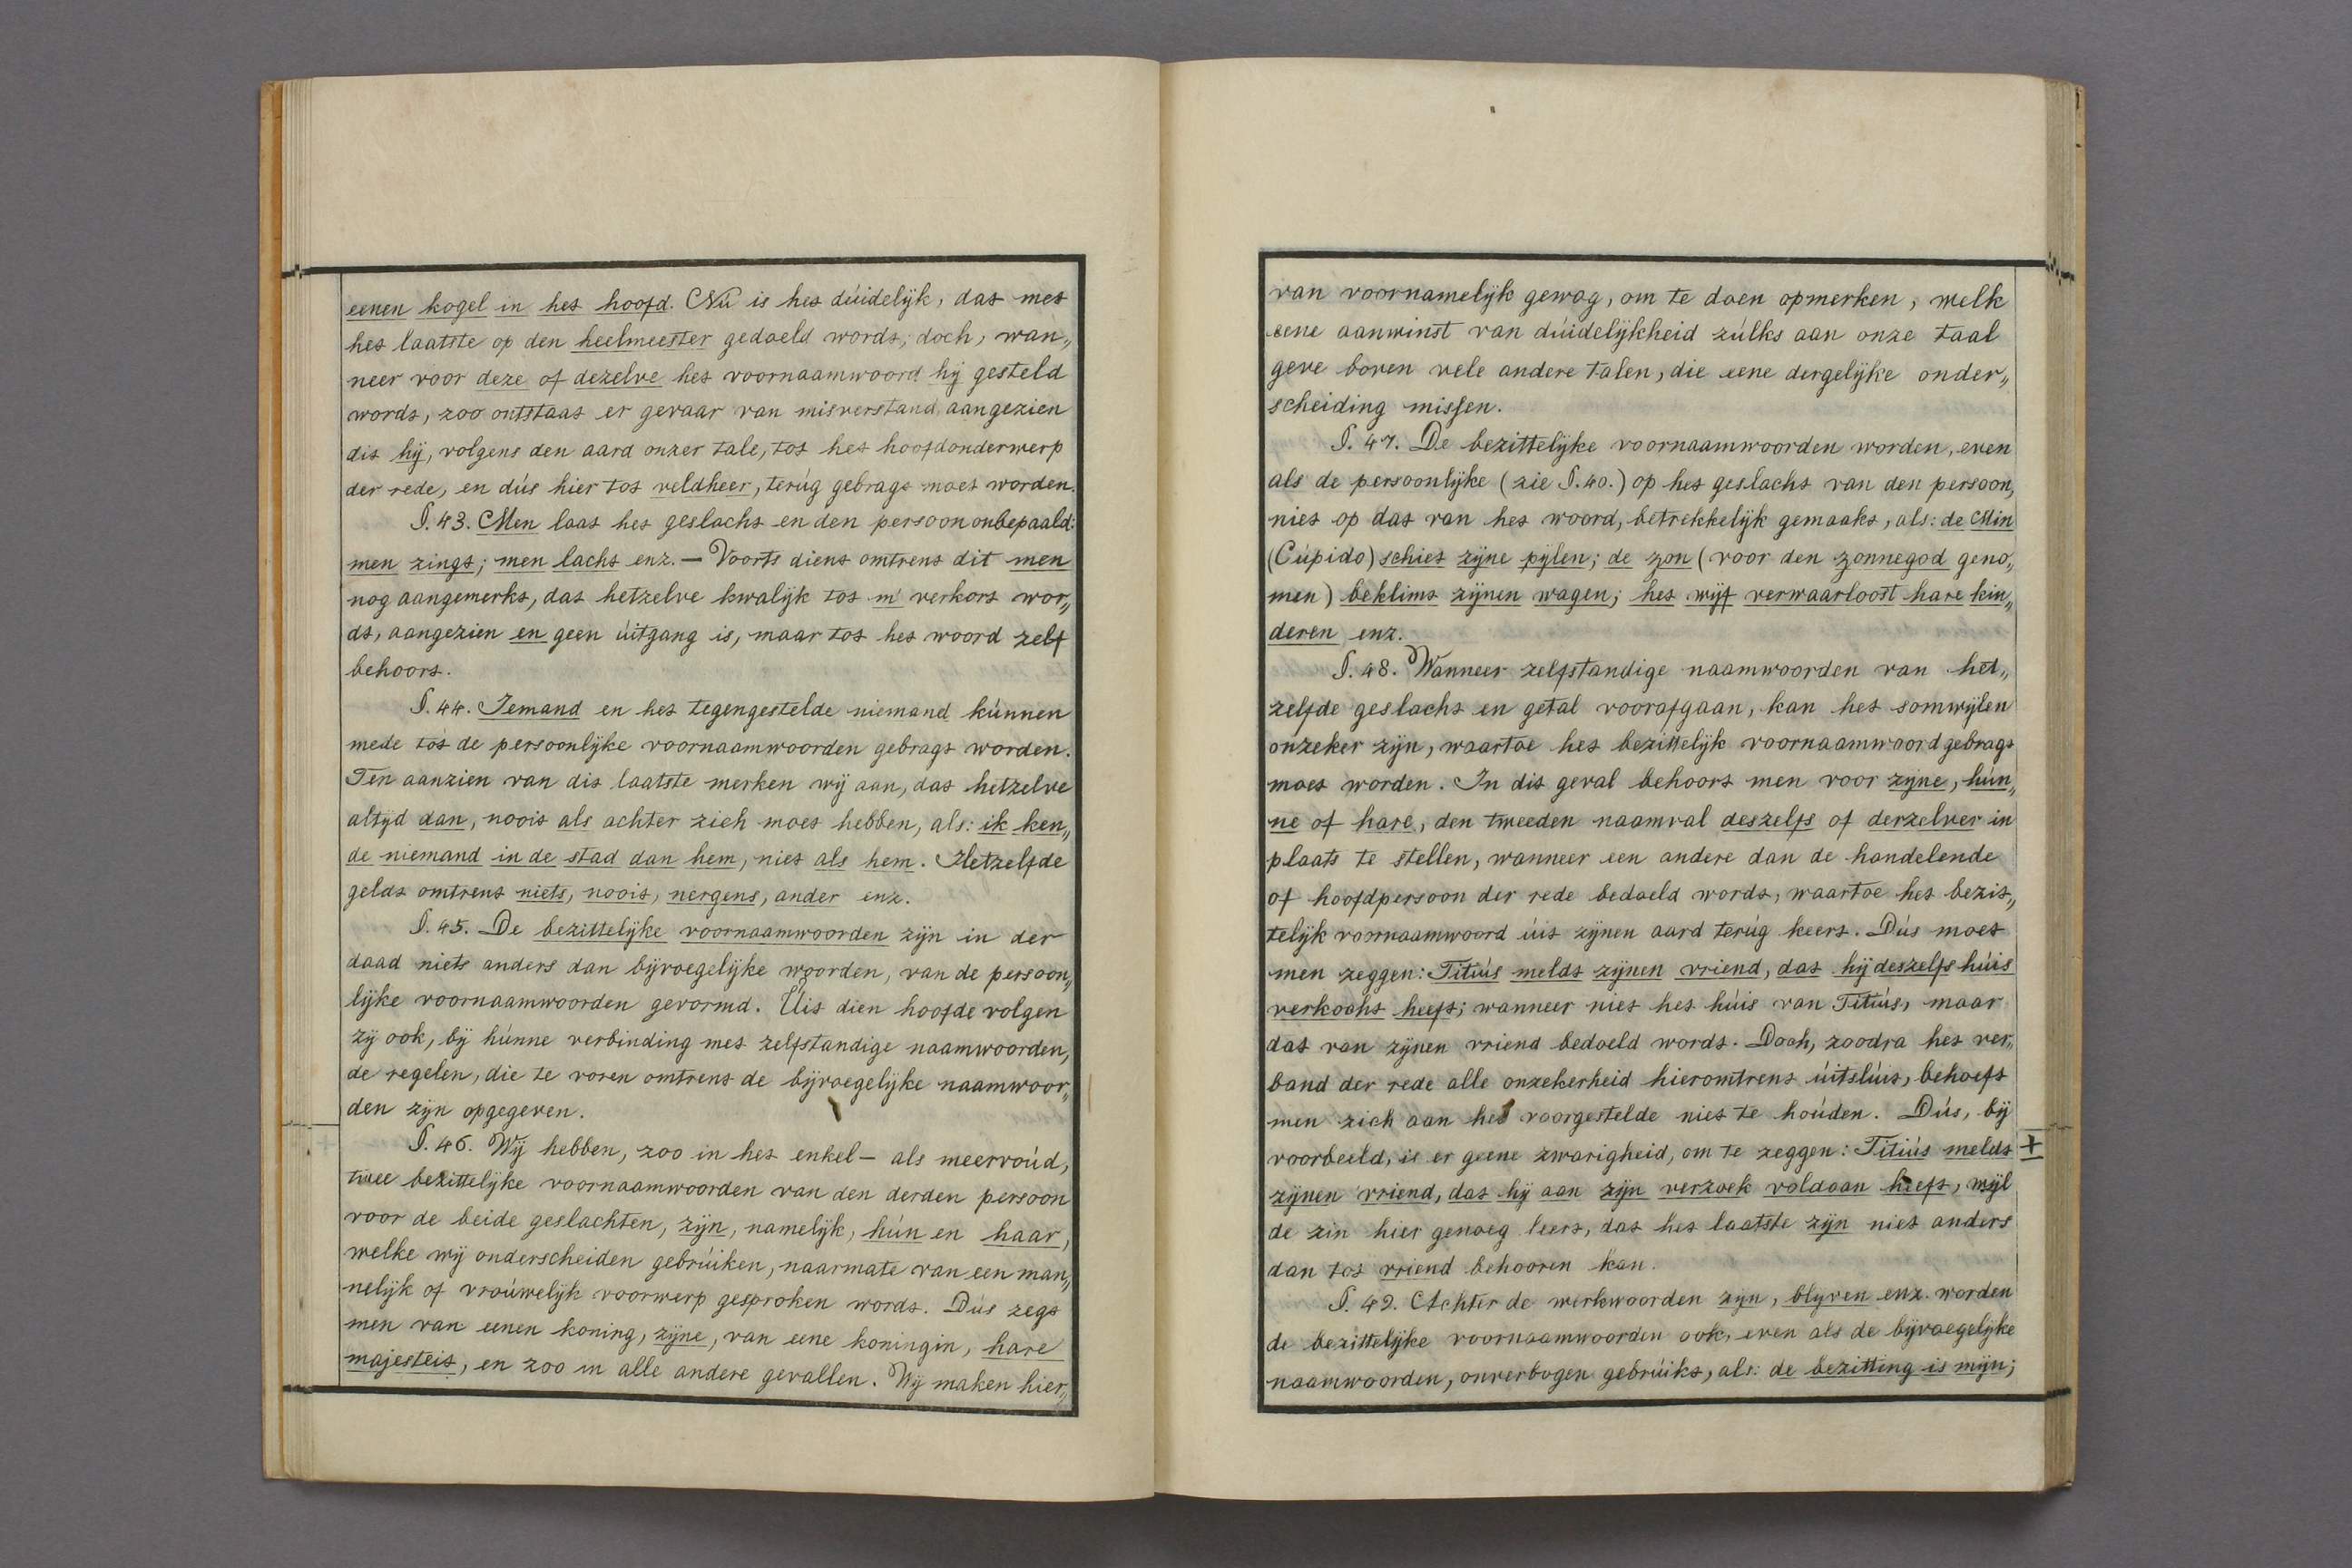 eenen kogel in het hoofd. Nú is het dúidelijk, dat met
het laatste op den heelmeester gedoeld wordt; doch, wan„
neer voor deze of dezelve het voornaamwoord hij gesteld
wordt, zoo ontstaat er gevaar van misverstand, aangezien
dit hij, volgens den aard onzer tale, tot het hoofdonderwerp
der rede, en dús hier tot veldheer, terúg gebragt moet worden.
§. 43. Men laat het geslacht en den persoon onbepaald:
men zingt; men lacht enz. — Voorts dient omtrent dit men
nog aangemerkt, dat hetzelve kwalijk tot m' verkort wor„
dt, aangezien en geen úitgang is, maar tot het woord zelf
behoort.
§. 44. Iemand en het tegengestelde niemand kúnnen
mede tot de persoonlijke voornaamwoorden gebragt worden.
Ten aanzien van dit laatste merken wij aan, dat hetzelve
altijd dan, nooit als achter zich moet hebben, als: ik ken„
de niemand in de stad dan hem, niet als hem. Hetzelfde
geldt omtrent niets, nooit, nergens, ander enz.
§. 45. De bezittelijke voornaamwoorden zijn in der
daad niets anders dan bijvoegelijke woorden, van de persoon„
lijke voornaamwoorden gevormd. Úit dien hoofde volgen
zij ook, bij húnne verbinding met zelfstandige naamwoorden,
de regelen, die te voren omtrent de bijvoegelijke naamwoor„
den zijn opgegeven.
§. 46. Wij hebben, zoo in het enkel— als meervoúd,
twee bezittelijke voornaamwoorden van den derden persoon
voor de beide geslachten, zijn, namelijk, hún en haar,
welke wij onderscheiden gebrúiken, naarmate van een man„
nelijk of vroúwelijk voorwerp gesproken wordt. Dús zegt
men van eenen koning, zijne, van eene koningin, hare
majesteit, en zoo in alle andere gevallen. Wij maken hier„
van voornamelijk gewag, om te doen opmerken, welk
eene aanwinst van dúidelijkheid zúlks aan onze taal
geve boven vele andere talen, die eene dergelijke onder„
scheiding missen.
§. 47. De bezittelijke voornaamwoorden worden, even
als de persoonlijke (zie §. 40.) op het geslacht van den persoon,
niet op dat van het woord, betrekkelijk gemaakt, als: de Min
(Cúpido) schiet zijne pijlen; de zon (voor den zonnegod geno„
men) beklimt zijnen wagen; het wijf verwaarloost hare kin„
deren enz.
§. 48. Wanneer zelfstandige naamwoorden van het„
zelfde geslacht en getal voorafgaan, kan het somwijlen
onzeker zijn, waartoe het bezittelijk voornaamwoord gebragt
moet worden. In dit geval behoort men voor zijne, hún„
ne of hare, den tweeden naamval deszelfs of derzelver in
plaats te stellen, wanneer een andere dan de handelende
of hoofdpersoon der rede bedoeld wordt, waartoe het bezit„
telijk voornaamwoord úit zijnen aard terúg keert. Dús moet
men zeggen: Titiús meldt zijnen vriend, dat hij deszelfs húis
verkocht heeft; wanneer niet het húis van Titiús, maar
dat van zijnen vriend bedoeld wordt. Doch, zoodra het ver„
band der rede alle onzekerheid hieromtrent úitslúit, behoeft
men zich aan het voorgestelde niet te hoúden. Dús, bij
voorbeeld, is er geene zwarigheid, om te zeggen: Titiús meldt +
zijnen vriend, dat hij aan zijn verzoek voldaan heeft, wijl
de zin hier genoeg leert, dat het laatste zijn niet anders
dan tot vriend behooren kan.
§. 49. Achter de werkwoorden zijn, blijven enz. worden
de bezittelijke voornaamwoorden ook, even als de bijvoegelijke
naamwoorden, onverbogen gebrúikt, als: de bezitting is mijn;